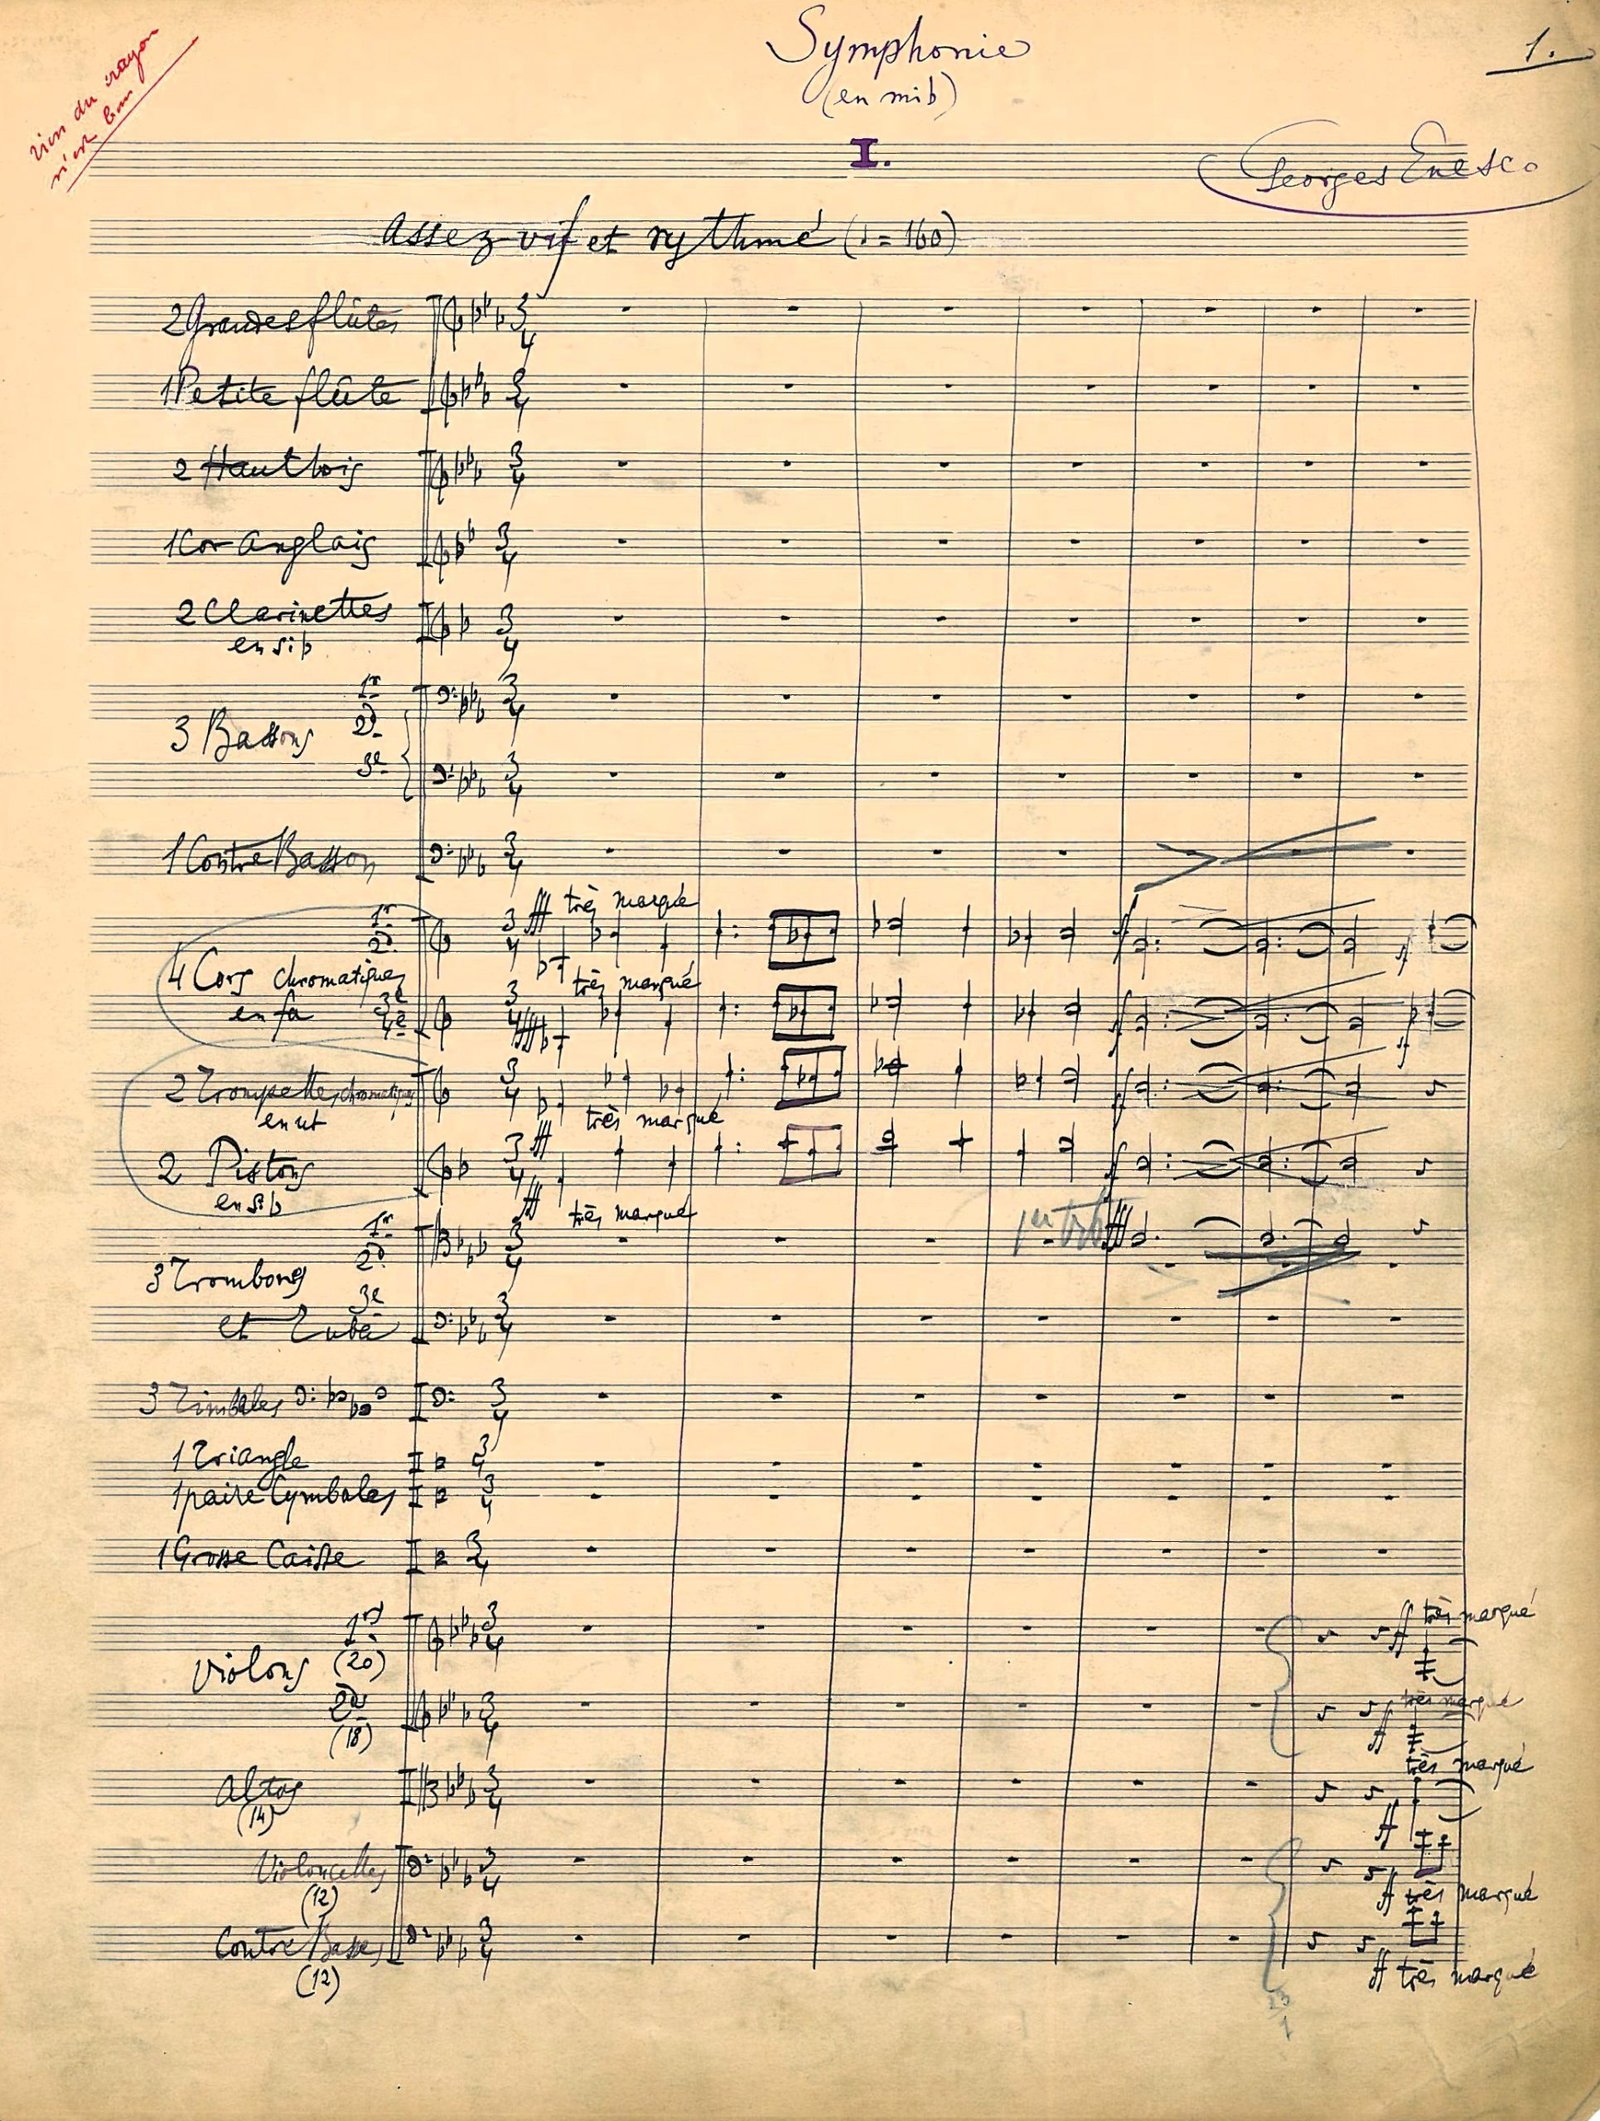 Symphonie
(en mi♭)
1.
rien du crayon
n'est bon
I.
Georges Enesco
Assez vif et rythmé (♩ = 160)
2 Grandes flûtes
1 Petite flûte
2 Hautbois
1 Cor Anglais
2 Clarinettes
en si♭
1r
3 Bassons 2d
3e
1 Contre Basson
fff très marqué
1r
2d
4 Cors chromatiques
très marqué
en fa 3e
4e
fff
ff
ff
2 Trompettes chromatiques
en ut
très marqué
fff
ff
2 Pistons
en si♭
fff très marqué
ff
1r
2d
1er
fff
3 Trombones
3e
et Tuba
3 Timbales
1 Triangle
1 paire Cymbales
1 Grosse Caisse
1rs
Violons (20)
ff très marqué
2ds
(18)
ff très marqué
Altos
(14)
ff très marqué
Violoncelles
(12)
ff très marqué
Contre Basses
(12)
ff très marqué